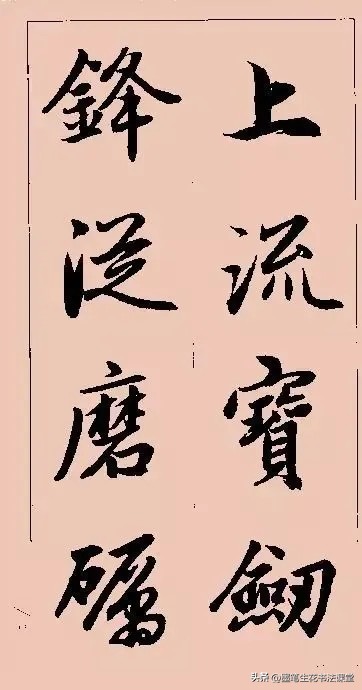 上流寶劒
鋒從磨礪
头条 @墨笔生花书法课堂